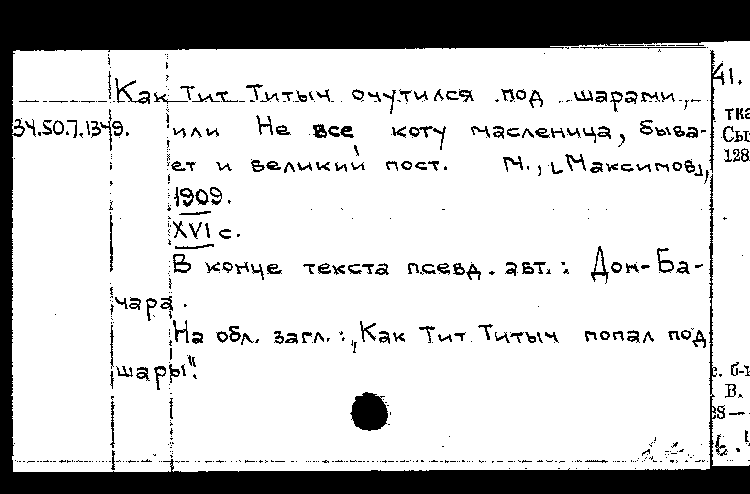 Как Тит Титыч очутился под шарами,
34.50.7.1349. или Не все коту масленица, быва-
ет и великий пост. М., [Максимов],
1909.
XVI с.
В конце текста псевд. авт.: Дон-Ба-
чара.
На обл. загл.: „Как Тит Титыч попал под
шары".
41.
128
В.